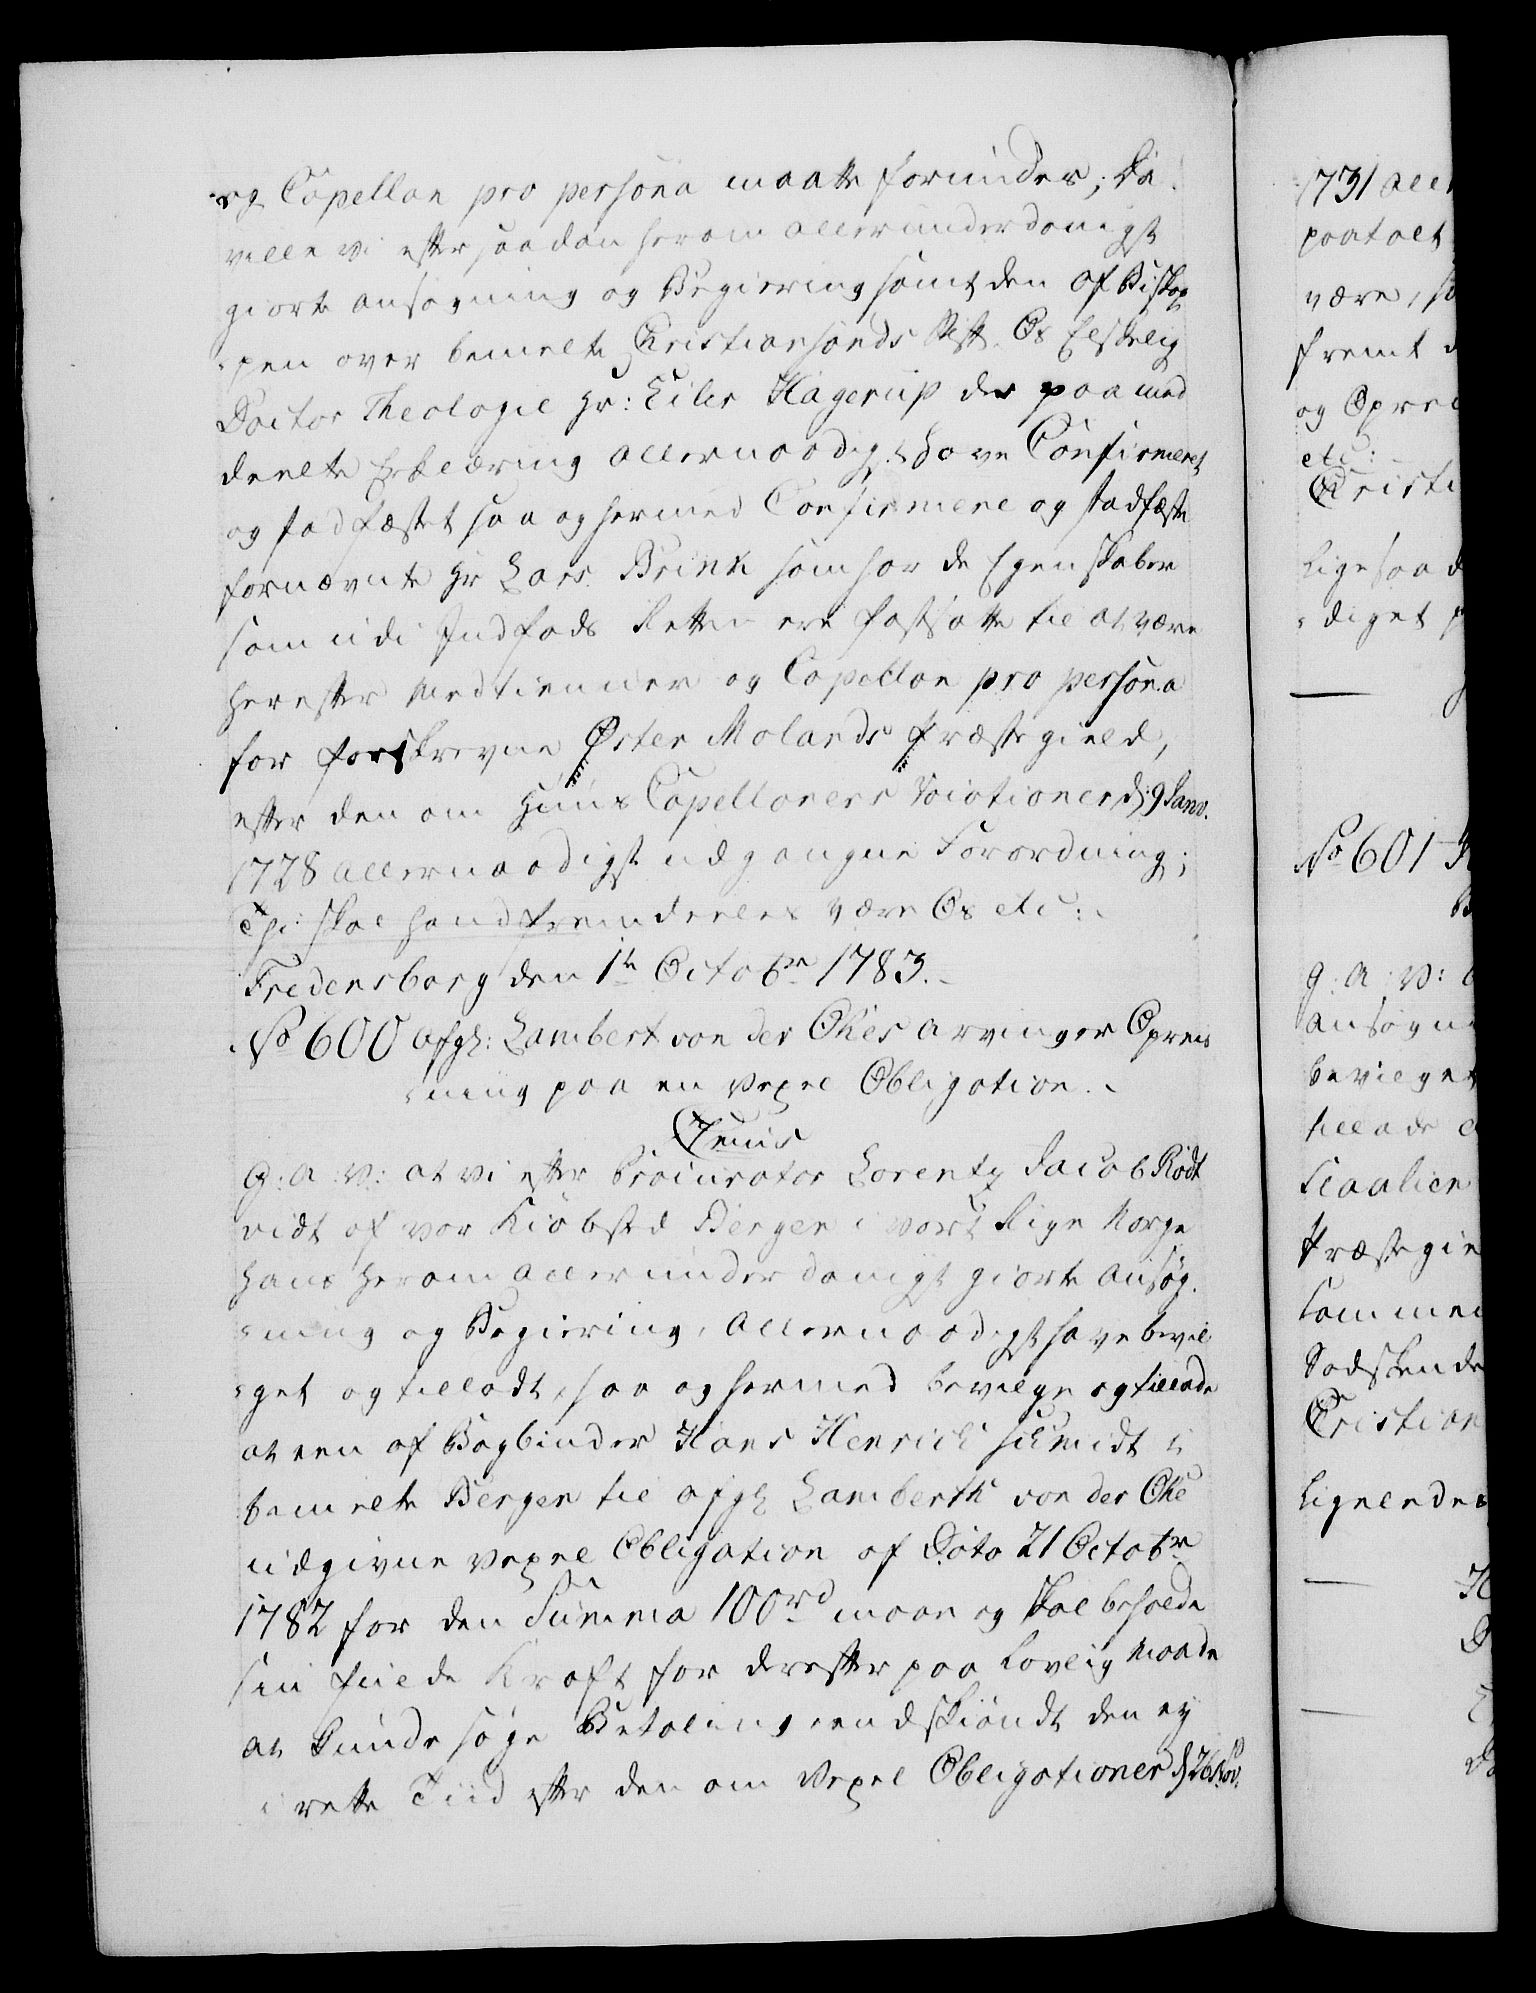 og Capellan pro persona maatte forundes; Da
ville vi efter saadan herom allerunderdanigst
giorte ansøgning og Begiering samt den af Biskop
-pen over bemelte Christiansands Stift Os Elskelig
Doctor Theologie Hr: Eiler Hagerup der paa med
deelte Erklæring allernaadigst have Confirmeret
og stadfæstet saa og hermed Confirmere og stadfæste
fornævnte Hr Lars Brink som har de Egenskaber
som udi Indføds Retten ere fastsatte til at være
herefter Medtienner og Capellan pro persona
for forskrevne Øster Molands Præstegield,
efter den om Huus Capellaners Vocationer d: 9 Janv.
1728 allernaadigst udgangne Forordning;
Thi skal hand fremdeeles være Os etc:
Fredensborg den 1te Octobr 1783.
No 600 Afgl: Lambert von der Ohes arvinger Opreis
-ning paa en Vexel Obligation.
C7mus
G: A: V: at vi efter Procurator Lorentz Jacob Rodt
vidt af vor Kiøbsted Bergen i vort Rige Norge
hans herom allerunderdanigst giorte Ansøg-
-ning og Begiering, Allernaadigst have bevil
-get og tilladt, saa og hermed bevilge og tillade
at een af Bogbinder Hans Henrich Schmidt i
bemelte Bergen til afgl Lamberth von der Ohe
udgivne Vexel Obligation af Dato 21 Octobr
1782 for den Summa 100rd maae og skal beholde
sin fulde Kraft for derefter paa Lovlig Maade
at kunde søge Betaling, endskiøndt den ey
i rette Tiid efter den om Vexel Obligationer d 26 Nov.
1731 aller
paatalt
være, sa
fremt d
og Oprei
etc:
Christi
Ligesaad
-diget p
No 601
G: A: V: a
ansøgni
bevilget
tillade a
Præstegie
kommen
Sødskende
Christian
Ligelende